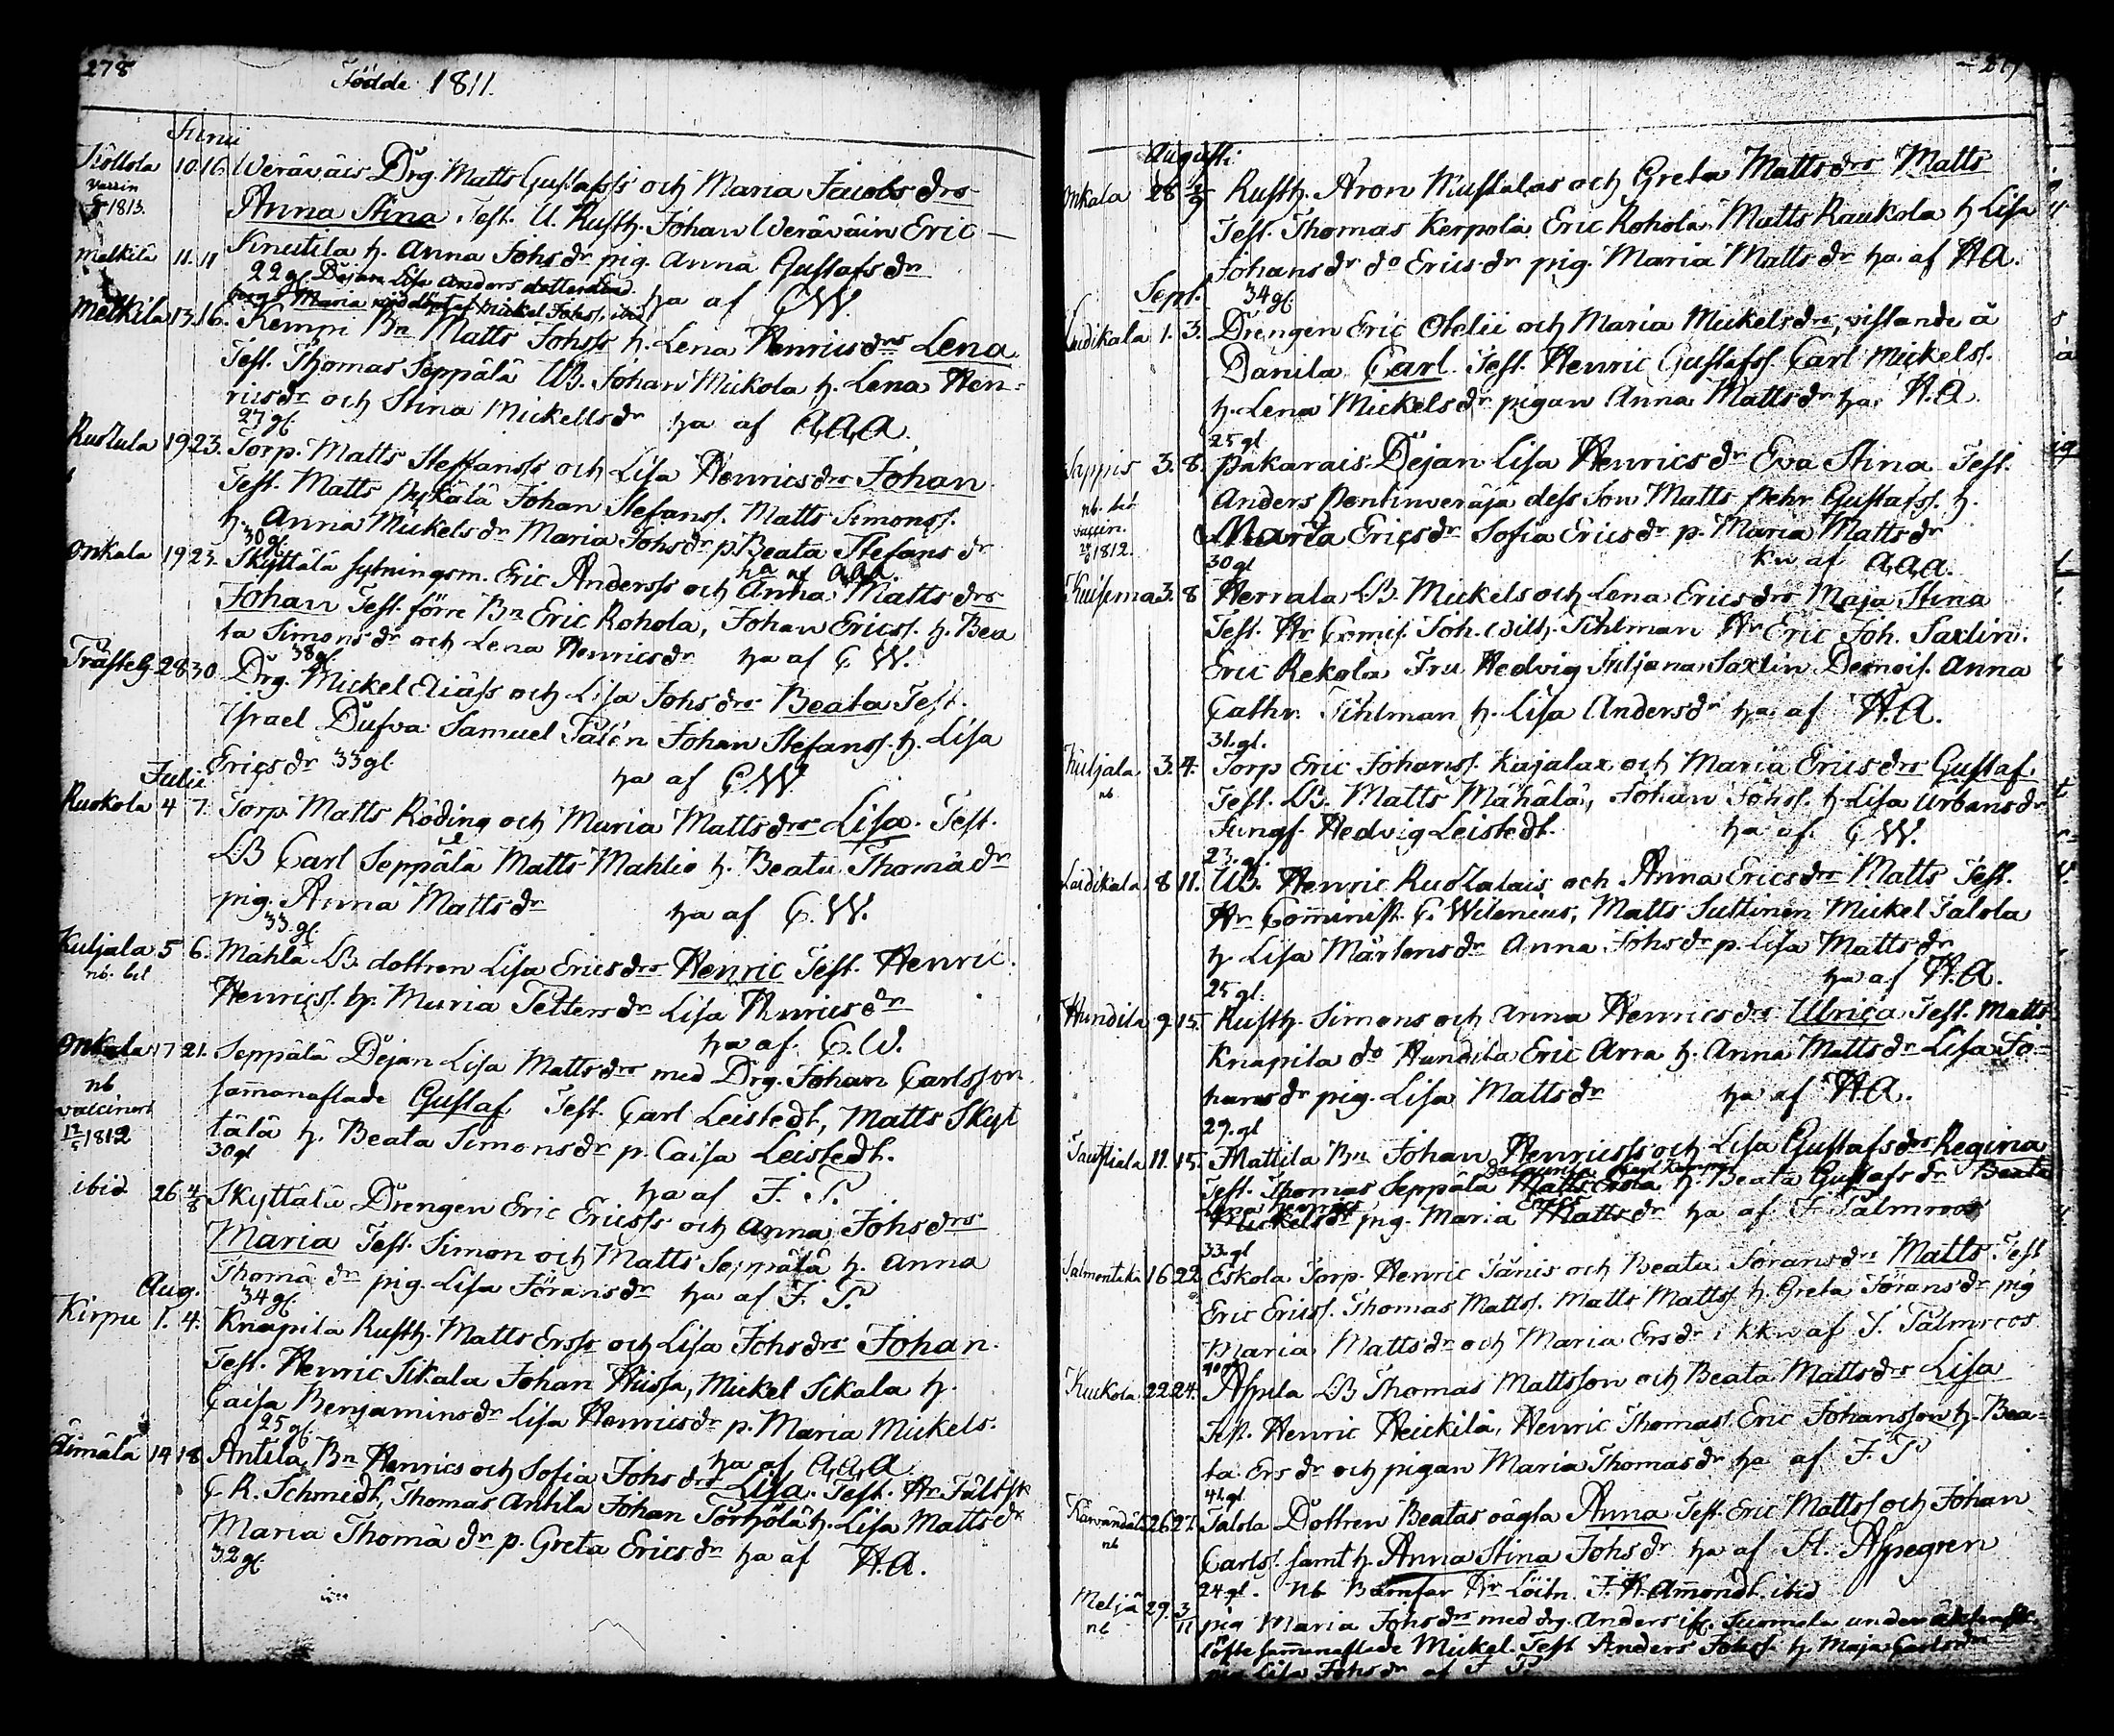 278
Födde 1811.
Junii
Kollola 10. 16. Weräväis Drg. Matts Gustafss och Maria Jacobs drs
vaccin 1813. Anna Stina Test. U. Rusth. Johan Weräväin Eric
Knutila h. Anna Johs dr pig. Anna Gustafs dr
22 gl. ha af C W.
Melkilä 11. 11 Dejan Lisa Anders dotter
Maria nöddöpt af Mickel Johss. ibid
Melkila 13. 16. Kempi Bn Matts Johss h. Lena Henrics drs Lena
Test. Thomas Seppälä UB. Johan Mickola h. Lena Hen-
rics dr och Stina Mickells dr ha af A,A,A.
27 gl.
19 23. Torp. Matts Steffanss och Lisa Henrics drs Johan
Test. Matts Pykälä Johan Stefanss. Matts Simonss.
h. Anna Mickels dr Maria Johs dr p Beata Stefans dr
30 gl. ha af A,A,A.
Onkala 19 23. Skyttälä sytningsm. Eric Anderss och Anna Matts drs
Johan Test. förre Bn Eric Rohola, Johan Ericss. h. Bea
ta Simons dr och Lena Henrics dr ha af C W.
38 gl.
28 30 Drg. Mickel Eliäss och Lisa Johs drs Beata Test.
Israel Dufva Samuel Palén Johan Stefanss. h. Lisa
Erics dr 33 gl. ha af C. W.
Julii
Ruokola 4 7. Torp. Matts Röding och Maria Matts drs Lisa. Test.
LB Carl Seppälä Matts Mahlio h. Beata Thomä dr
pig. Anna Matts dr ha af C. W.
33. gl.
Kuljala 5 6. Mahla LB. dottren Lisa Erics drs Henric Test. Henric
nb.
Henricss. h. Maria Petters dr Lisa Henrics dr
ha af. C. W.
Onkala 17 21. Seppälä Dejan Lisa Matts drs med Drg. Johan Carlsson
nb sammanaflade Gustaf Test. Carl Leistedt, Matts Skyt
vaccinert 1812 tälä h. Beata Simons dr p. Caisa Leistedt.
30 gl ha af J. P.
ibid 26 4/8 Skyttälä Drengen Eric Ericss och Anna Johs drs
Maria Test. Simon och Matts Seppälä h. Anna
Thomä dr pig. Lisa Jörans dr ha af J. P.
34 gl.
Aug.
Kirpu 1. 4. Knapila Rusth. Matts Ersss och Lisa Johs drs Johan.
Test. Henric Sikala Johan Hussa, Mickel Sikala h.
Caisa Benjamins dr Lisa Henrics dr p. Maria Mickels.
25 gl. ha af A,A,A
Äimälä 14 18. Antila Bn Henrics och Sofia Johs drs Lisa. Test. Hr. Fältsk
C R. Schmedt, Thomas Antila Johan Torhölä h. Lisa Matts dr
Maria Thomä dr p. Greta Erics dr ha af H. A.
32 gl.
Augusti
Onkala 28 1/9 Rusth. Aron Mustalas och Greta Matts drs Matts
Test. Thomas Kerpola Eric Rohola Matts Raukola h Lisa
Johans dr do Erics dr pig. Maria Matts dr ha. af H A.
34 gl.
Sept.
Ludikala 1. 3. Drengen Eric Otelii och Maria Mickels drs, vistande å
Danila Carl. Test. Henric Gustafss. Carl Mickels.
h. Lena Mickels dr pigan Anna Matts dr ha H. A.
25 gl
3. 8. Pakarais Dejan Lisa Henrics dr Eva Stina Test.
nb.
vaccin. 1812. Anders Pentinveräjä dess Son Matts Pehr Gustafss. h.
Maria Erics dr Sofia Erics dr p. Maria Matts dr
30 gl kn af A,A,A.
Kuisema 3. 8 Herrala LB. Mickels och Lena Erics drs Maja Stina
Test. Hr Comis. Joh. Wilh. Tihlman Hr Eric Joh. Saxlin.
Eric Rekola Fru Hedvig Juljana Saxlin Demois. Anna
Cathr. Tihlman h. Lisa Anders dr ha af H. A.
31. gl.
Kuljala 3. 4. Torp Eric Johanss. Kajalax och Maria Erics drs Gustaf.
nb. Test. LB. Matts Mähälä, Johan Johss. h. Lisa Urbans dr
Jungf. Hedvig Leistedt. ha af. C W.
23. gl.
Ludikala 8 11. UB. Henric och Anna Erics drs Matts Test.
Hr Comminist. C. Wilenius, Matts Suttinen Mickel Talola
h Lisa Mårtens dr Anna Johs dr p. Lisa Matts dr
25 gl. ha af H. A.
Hundila 9. 15. Rusth. Simons och Anna Henrics drs Ulrica Test. Matts
Knapila do Hundila Eric Arra h. Anna Matts dr Lisa Jo-
hans dr pig. Lisa Matts dr ha af H A.
29. gl
11. 15. Mattila Bn Johan Henricss och Lisa Gustafs drs Regina
Test. Thomas Seppälä Matts h. Beata Gustafs dr Beata
Mickels dr pig. Maria Matts dr ha af J Palmroos
33. gl
Salmentaka 16 22. Eskola Torp. Henric Tanis och Beata Jörans drs Matts Test
Eric Ericss. Thomas Mattss. Matts Mattss h. Greta Jörans dr pig
Maria Matts dr och Maria Ers dr i kkn af J. Palmroos
40 gl
Kuckola. 22. 24. Aspila LB Thomas Mattsson och Beata Matts drs Lisa
Test. Henric Heickilä, Henric Thomass. Eric Johansson h. Bea-
ta Ers dr och pigan Maria Thomas dr ha af J. P
41. gl
26 27. Talola Dottren Beatas oägta Anna Test. Eric Mattss och Johan
nb
Carlss. samt h. Anna Stina Johs dr ha af H. Aspegren
24 gl. nb Barnfar Hr Löitn. J. H. Amondt ibid
Meljä 29. 3/11 pig Maria Johs drs med drg. Anders Suomela under äktenskaps
nb löfte sammanaflade Mickel. Test Anders Johss. h. Maja Carls dr
pig Lisa Johs dr af J P